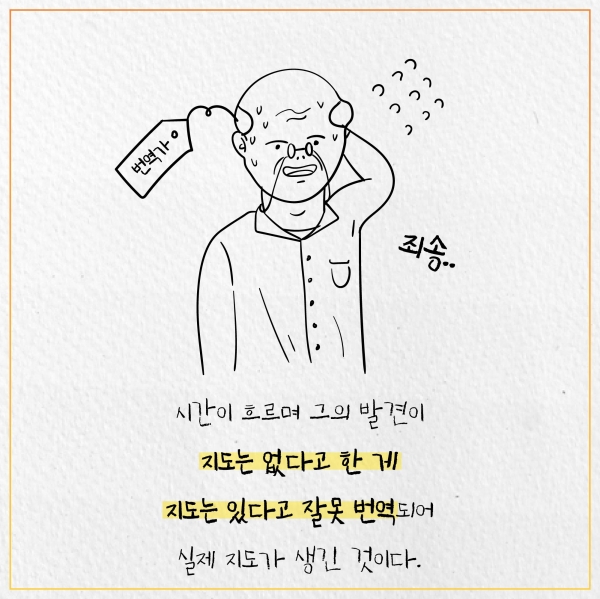 번역가
죄송..
시간이 흐르며 그의 발견이
지도는 없다고 한 게
지도는 있다고 잘못 번역되어
실제 지도가 생긴 것이다.